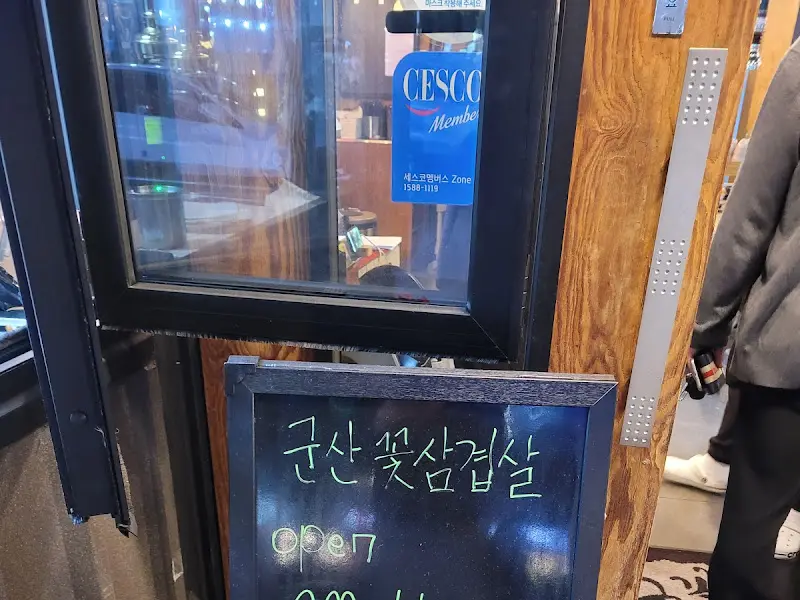 마스크 착용해 주세요
CESCO
Member
세스코멤버스 Zone
1588-1119
군산 꽃삼겹살
open